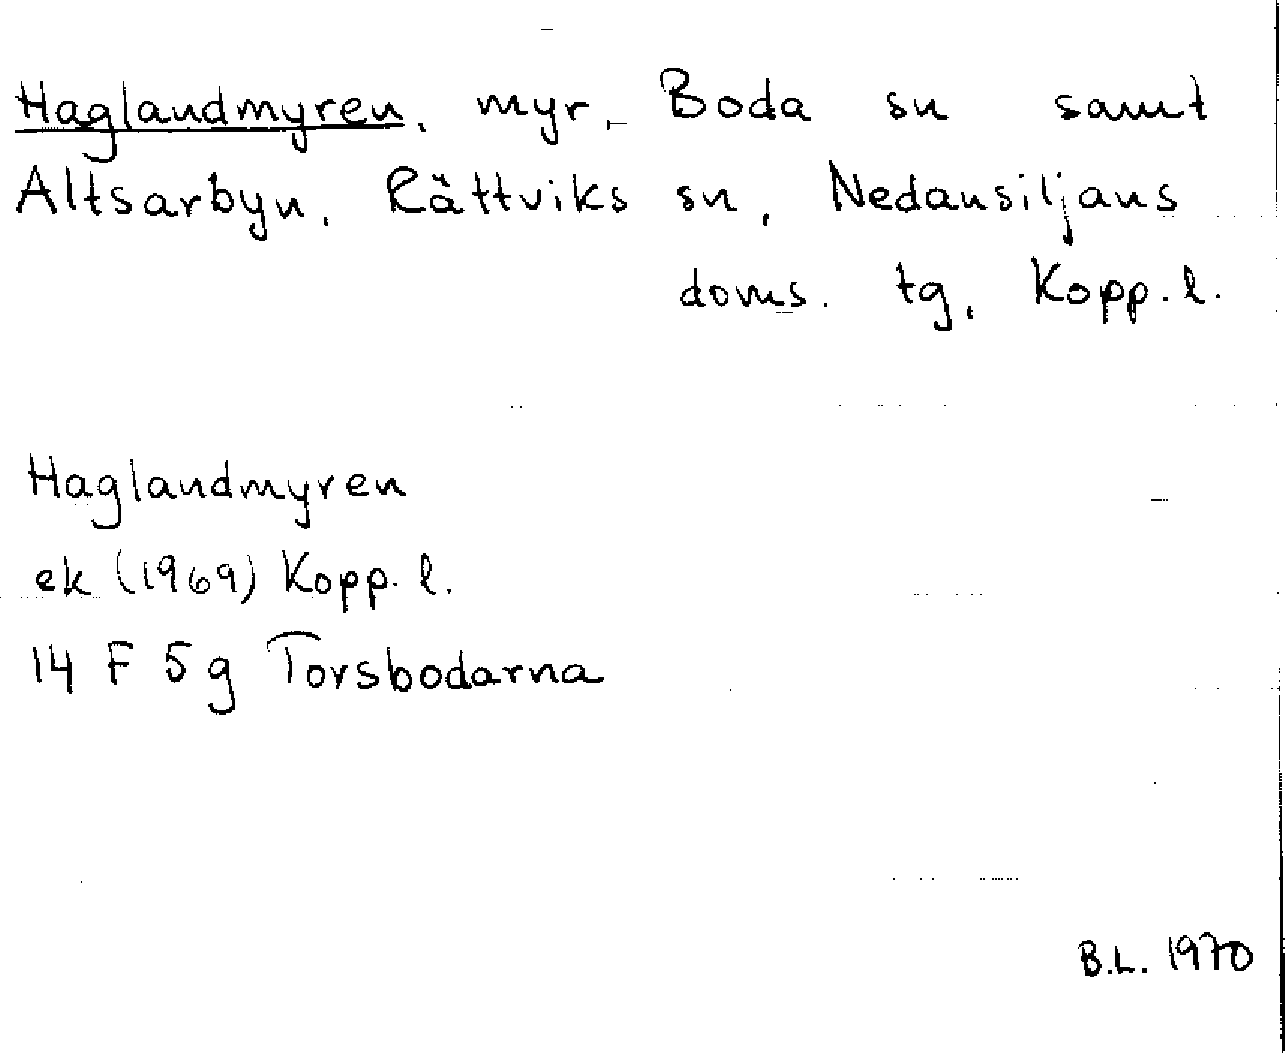 Haglandmyren, myr, Boda sn samt
Altsarbyn, Rättviks sn, Nedansiljans
doms. tg, Kopp. l.
Haglandmyren
ek (1969) Kopp. l.
14 F 5g Torsbodarna
B.L. 1970